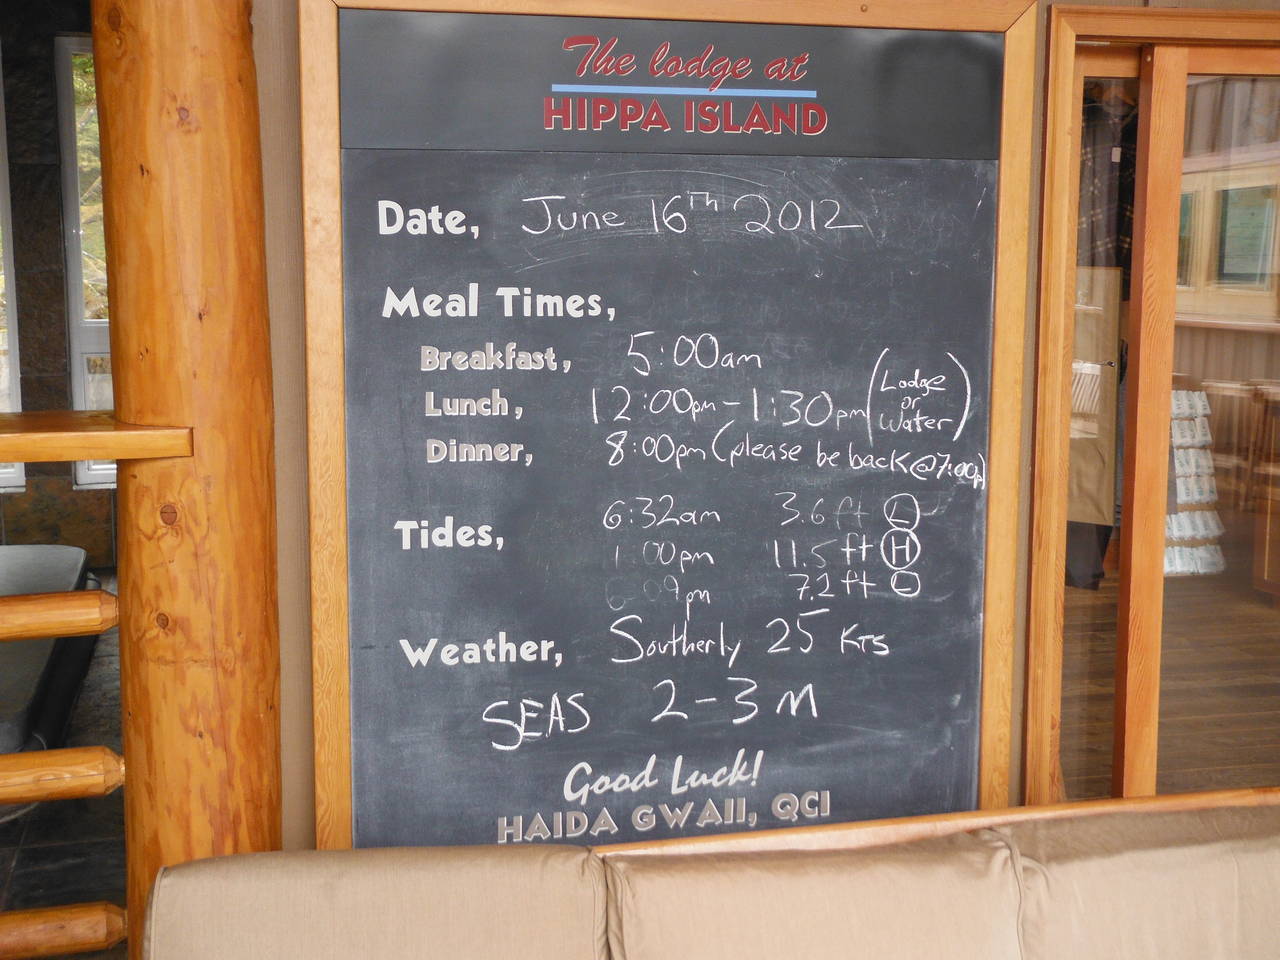 The lodge at
HIPPA ISLAND
Date, June 16Th 2012
Meal Times,
Breakfast, 5:00am
Lunch, 12:00pm - 1:30pm (Lodge or Water)
Dinner, 8:00pm (please be back @ 7:00p)
Tides, 6:32am 3.6 ft L
1:00pm 11.5 ft H
6:09pm 7.2 ft L
Weather, Southerly 25 KTS
SEAS 2-3 M
Good Luck!
HAIDA GWAII, QCI